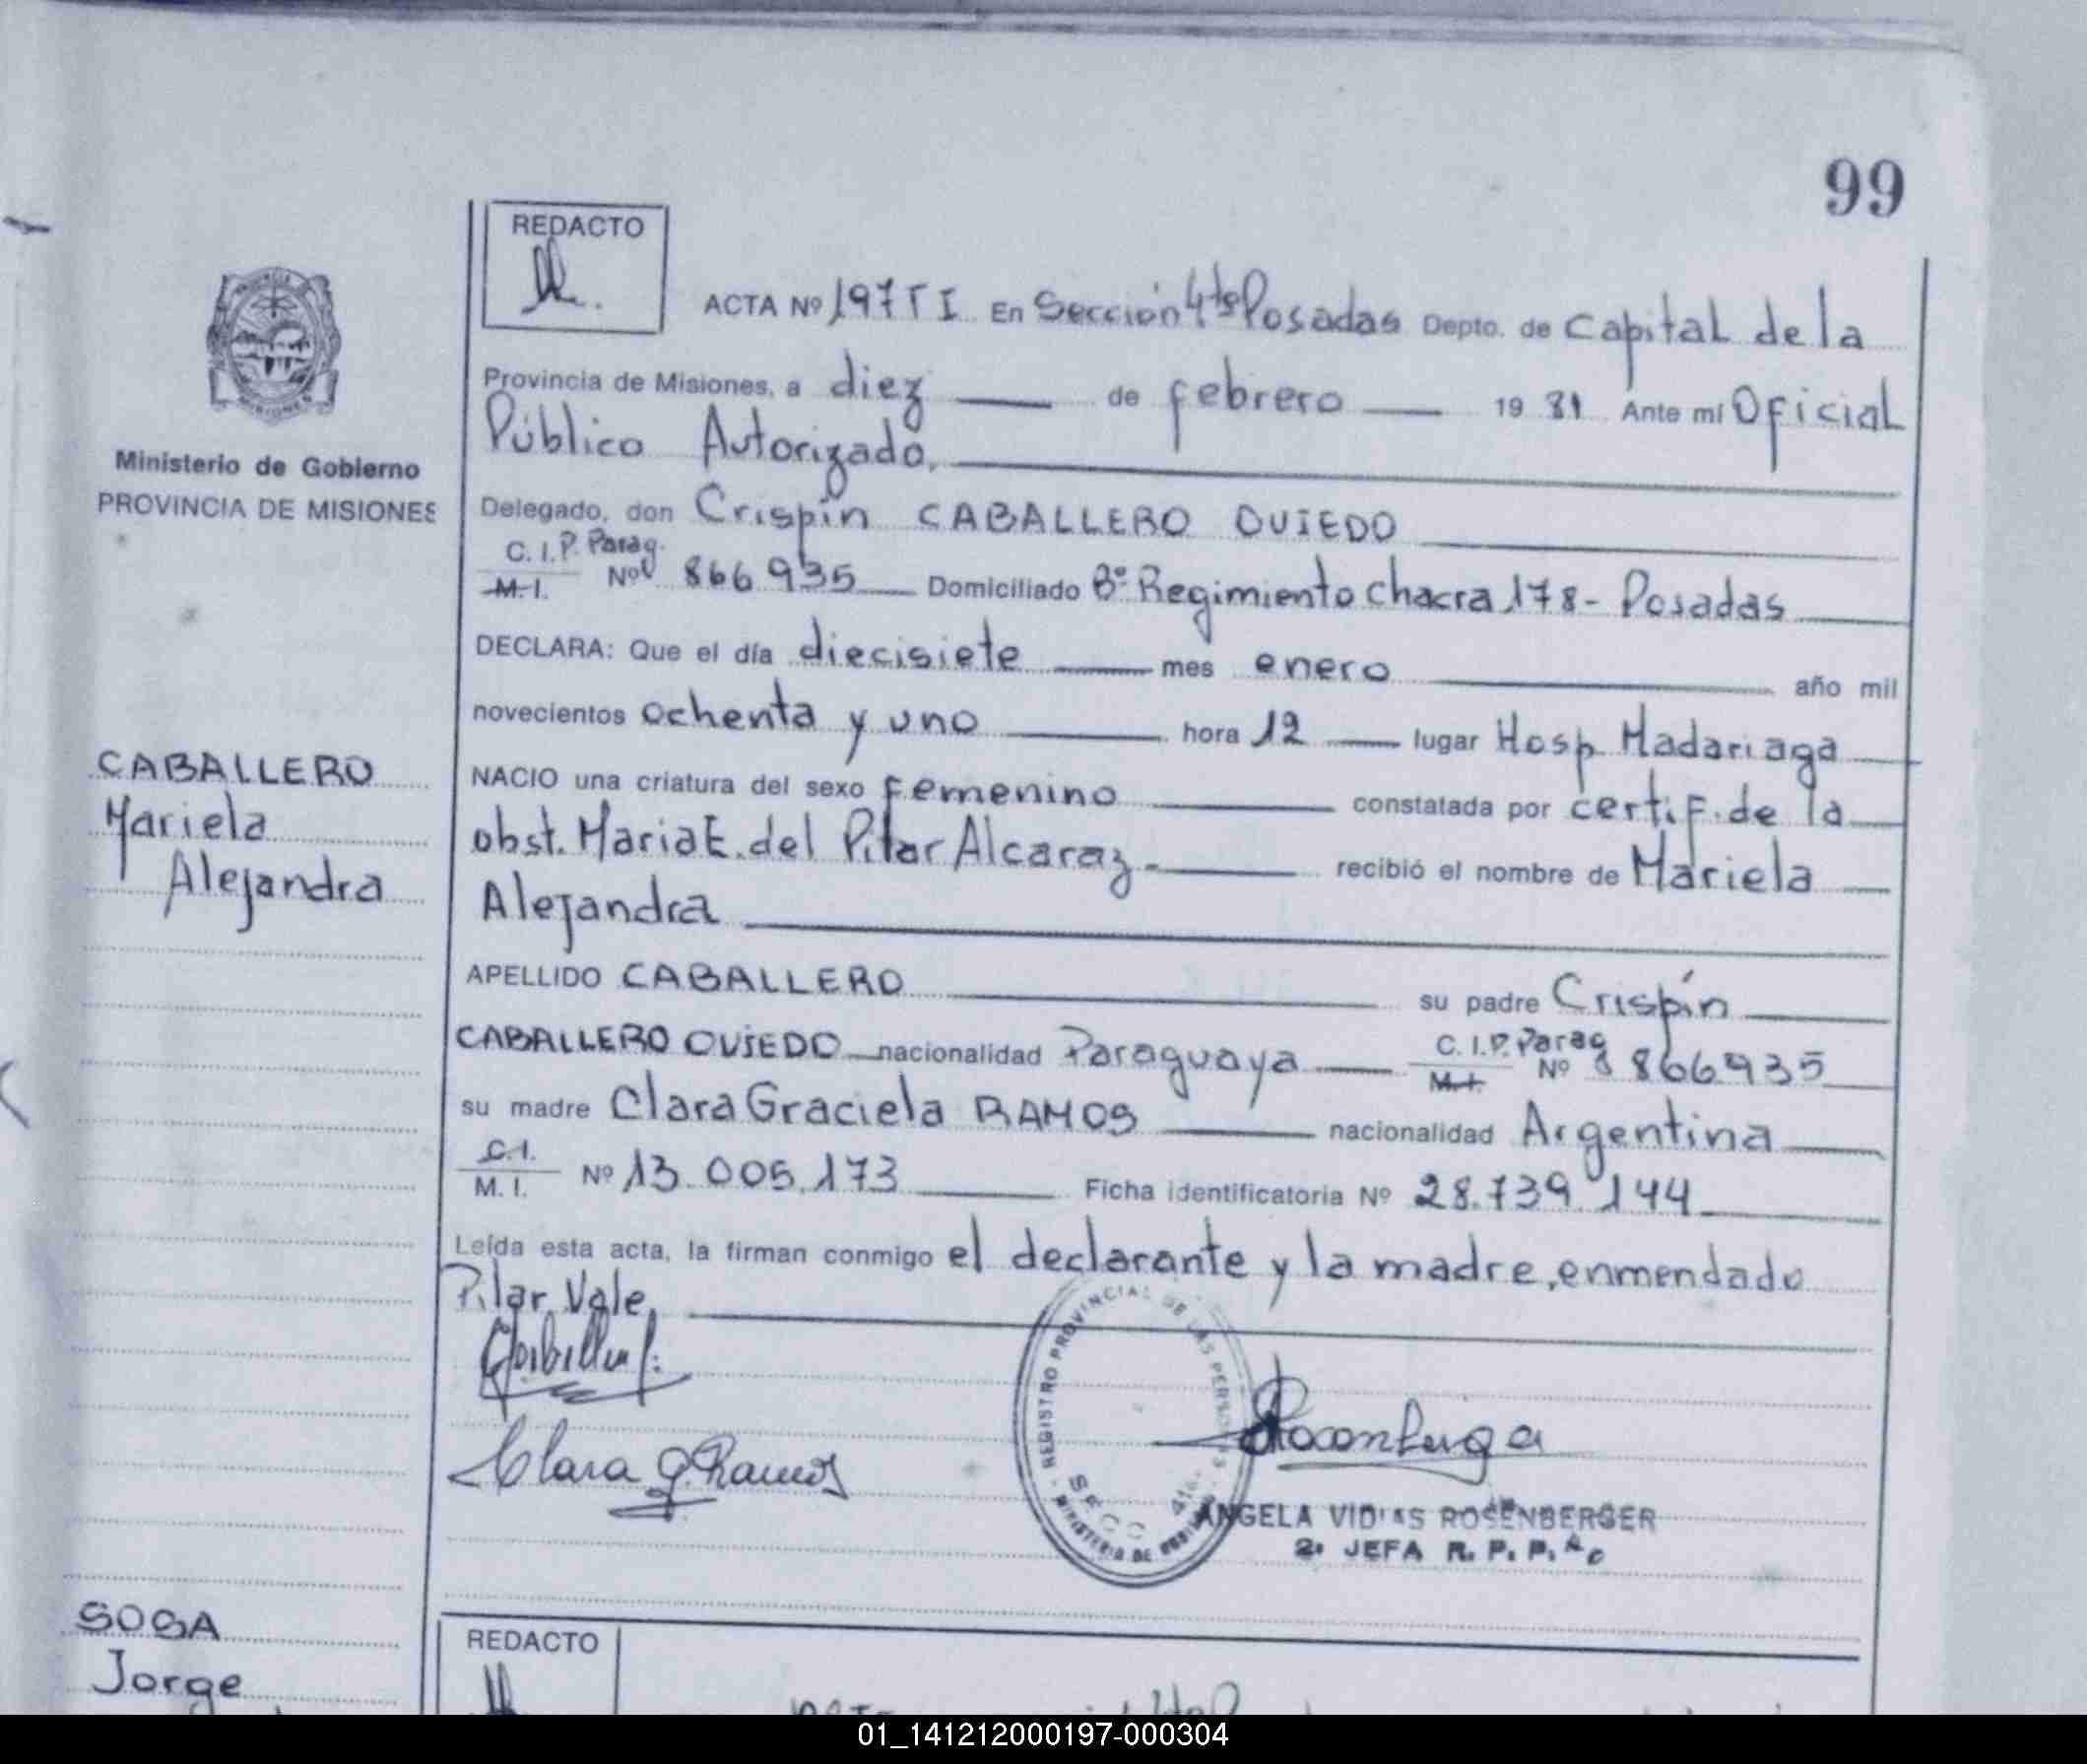 99
REDACTO
ACTA Nº 197 T I En Sección 4ta Posadas Depto. de Capital de la
Provincia de Misiones, a diez de febrero 19 81 Ante mí Oficial
Público Autorizado,
Ministerio de Gobierno
PROVINCIA DE MISIONES
Delegado, don Crispín CABALLERO OVIEDO
C.I.P. Parag.
M.I. Nº 866935 Domiciliado Bº Regimiento Chacra 178 - Posadas
DECLARA: Que el día diecisiete mes enero año mil
novecientos ochenta y uno hora 12 lugar Hosp. Madariaga
CABALLERO
Mariela
Alejandra
NACIO una criatura del sexo femenino constatada por certif. de la
obst. Maria E. del Pilar Alcaraz - recibió el nombre de Mariela
Alejandra
APELLIDO CABALLERO su padre Crispín
CABALLERO OVIEDO nacionalidad Paraguaya C.I.P. Parag
M.I. Nº 866935
su madre Clara Graciela RAMOS nacionalidad Argentina
C.I.
M.I. Nº 13.005.173 Ficha identificatoria Nº 28.739.144
Leída esta acta, la firman conmigo el declarante y la madre, enmendado
Pilar, Vale,
Clara G. Ramos
REGISTRO PROVINCIAL DE LAS PERSONAS
MINISTERIO DE GOBIERNO
SECC 4ta
ANGELA VIDIAS ROSENBERGER
2ª JEFA R. P. P.
SOSA
Jorge
REDACTO
01_141212000197-000304